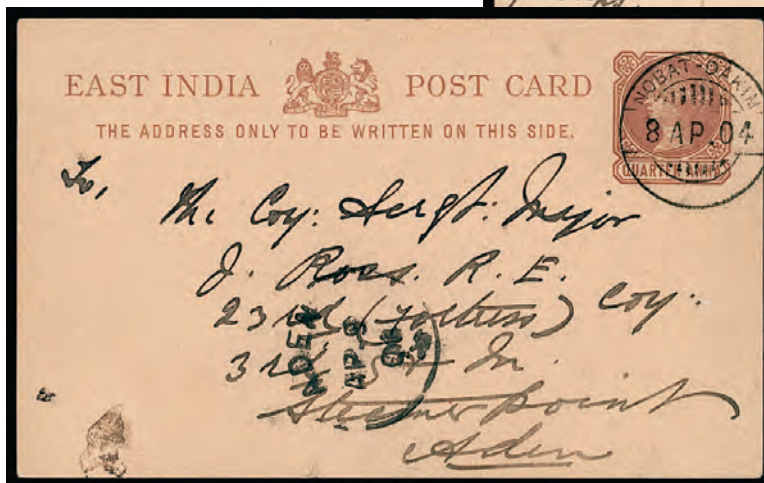 EAST INDIA POST CARD
THE ADDRESS ONLY TO BE WRITTEN ON THIS SIDE.
QUARTER ANNA
NOBAT-DAKIM
8 AP.04
To,
The Coy: Sergt: Major
J. Ross. R. E.
23rd (Fortress) Coy:
3rd
Steamer Point
Aden
ADEN
AP 8